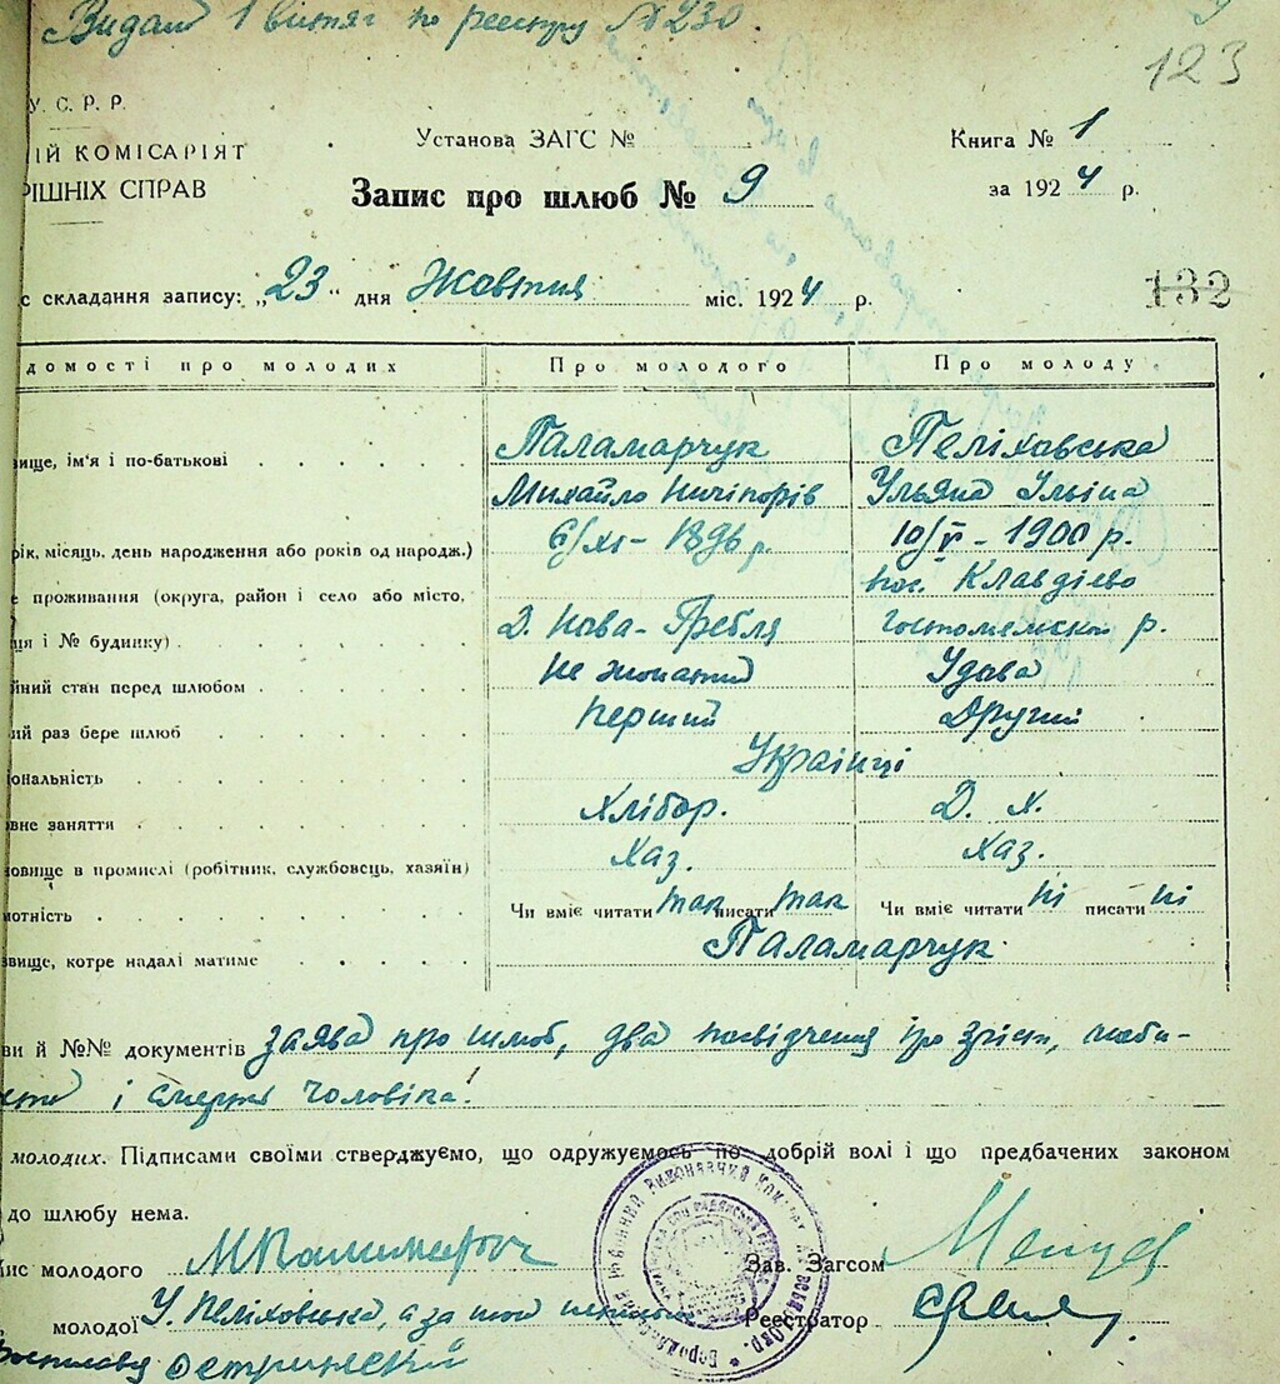 Видано 1 витяг по реєстру № 230.
123
У. С. Р. Р.
Установа ЗАГС №
Книга № 1
ІЙ КОМІСАРІЯТ
РІШНІХ СПРАВ
Запис про шлюб № 9
за 1924 р.
с складання запису: „23" дня Жовтня міс. 1924 р.
132
домості про молодих
Про молодого
Про молоду
вище, ім'я і по-батькові
Паламарчук
Пеліховська
Михайло Ничіпорів
Ульяна Ільіна
рік, місяць, день народження або років од народж.)
6/XI - 1896 р.
10/V - 1900 р.
проживання (округа, район і село або місто,
пос. Клавдієво
ця і № будинку)
Д. Нова-Гребля
Гостомельской р.
йний стан перед шлюбом
Не жонатий
Удова
ий раз бере шлюб
Перший
Другий
іональність
Українці
вне заняття
Хлібор.
Д. Х.
овище в промислі (робітник, службовець, хазяїн)
Хаз.
Хаз.
мотність
Чи вміє читати так писати так
Чи вміє читати ні писати ні
звище, котре надалі матиме
Паламарчук
ви й №№ документів заява про шлюб, два посвідчення про зріст,
і смерть чоловіка!
молодих. Підписами своїми стверджуємо, що одружуємось по добрій волі і що предбачених законом
до шлюбу нема.
пис молодого М Паламарчук
Зав. Загсом
молодої У. Пеліховська, а за
Реєстратор